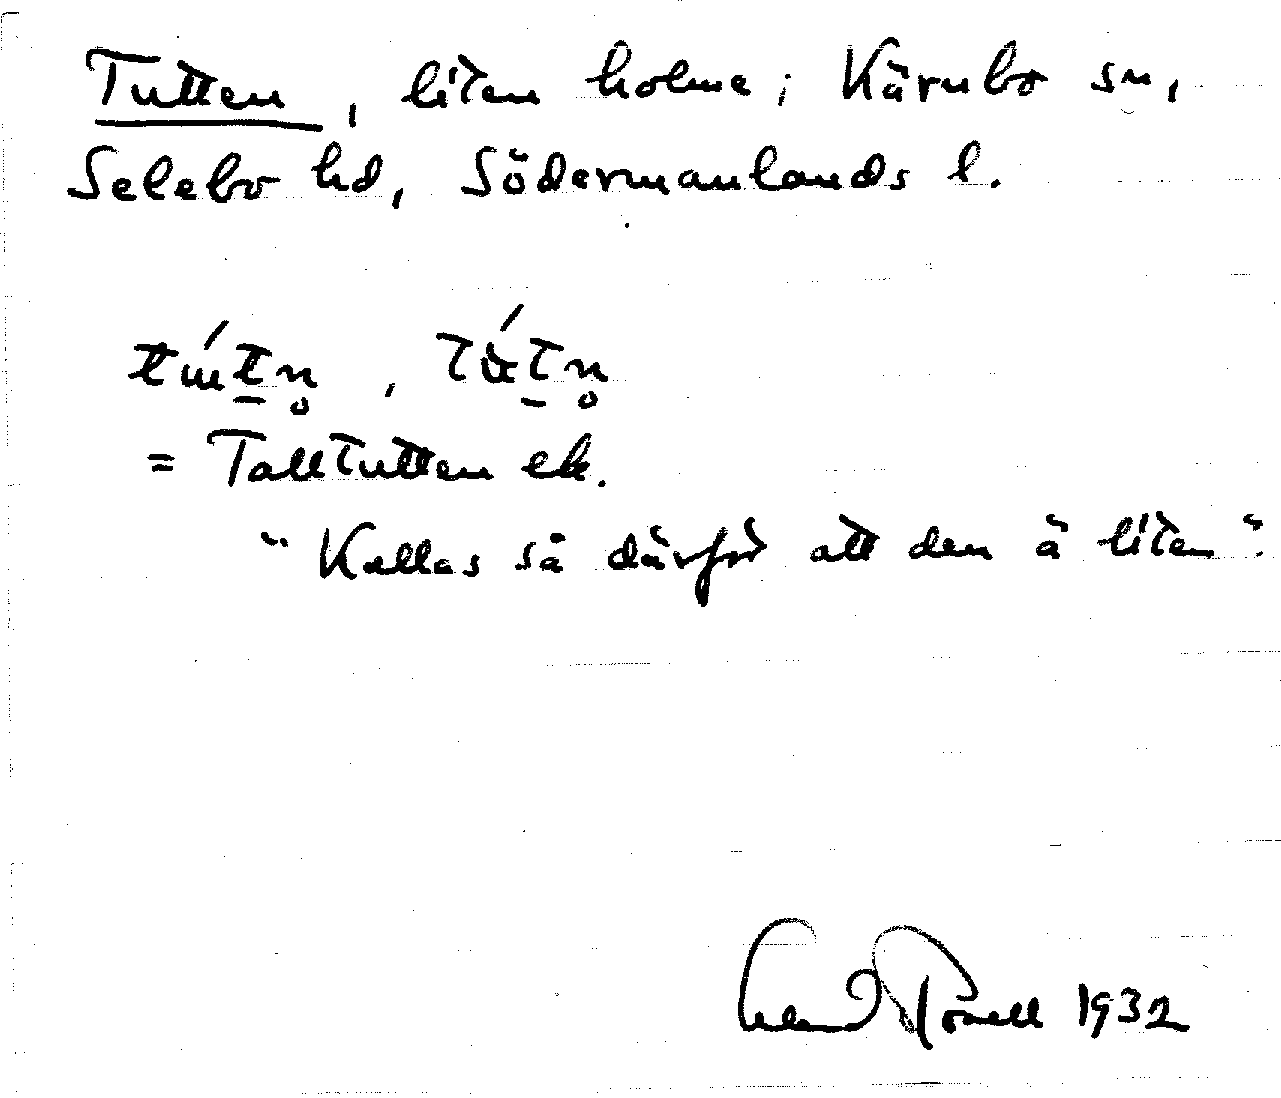 Tutten, liten holme; Kärnbo sn,
Selebo hd, Södermanlands l.
= Talltutten ek.
"Kallas så därför att den ä liten".
1932